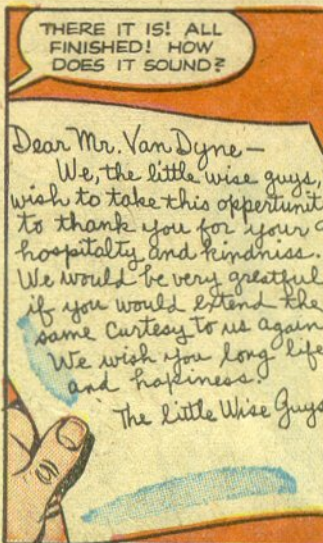 THERE IT IS! ALL
FINISHED! HOW
DOES IT SOUND?
Dear Mr. Van Dyne—
We, the little wise guys,
wish to take this oppertunit
to thank you for your
hospitalty and kindniss.
We would be very greatful
if you would extend the
same Curtesy to us again
We wish you long life
and happiness.
The little Wise Guys